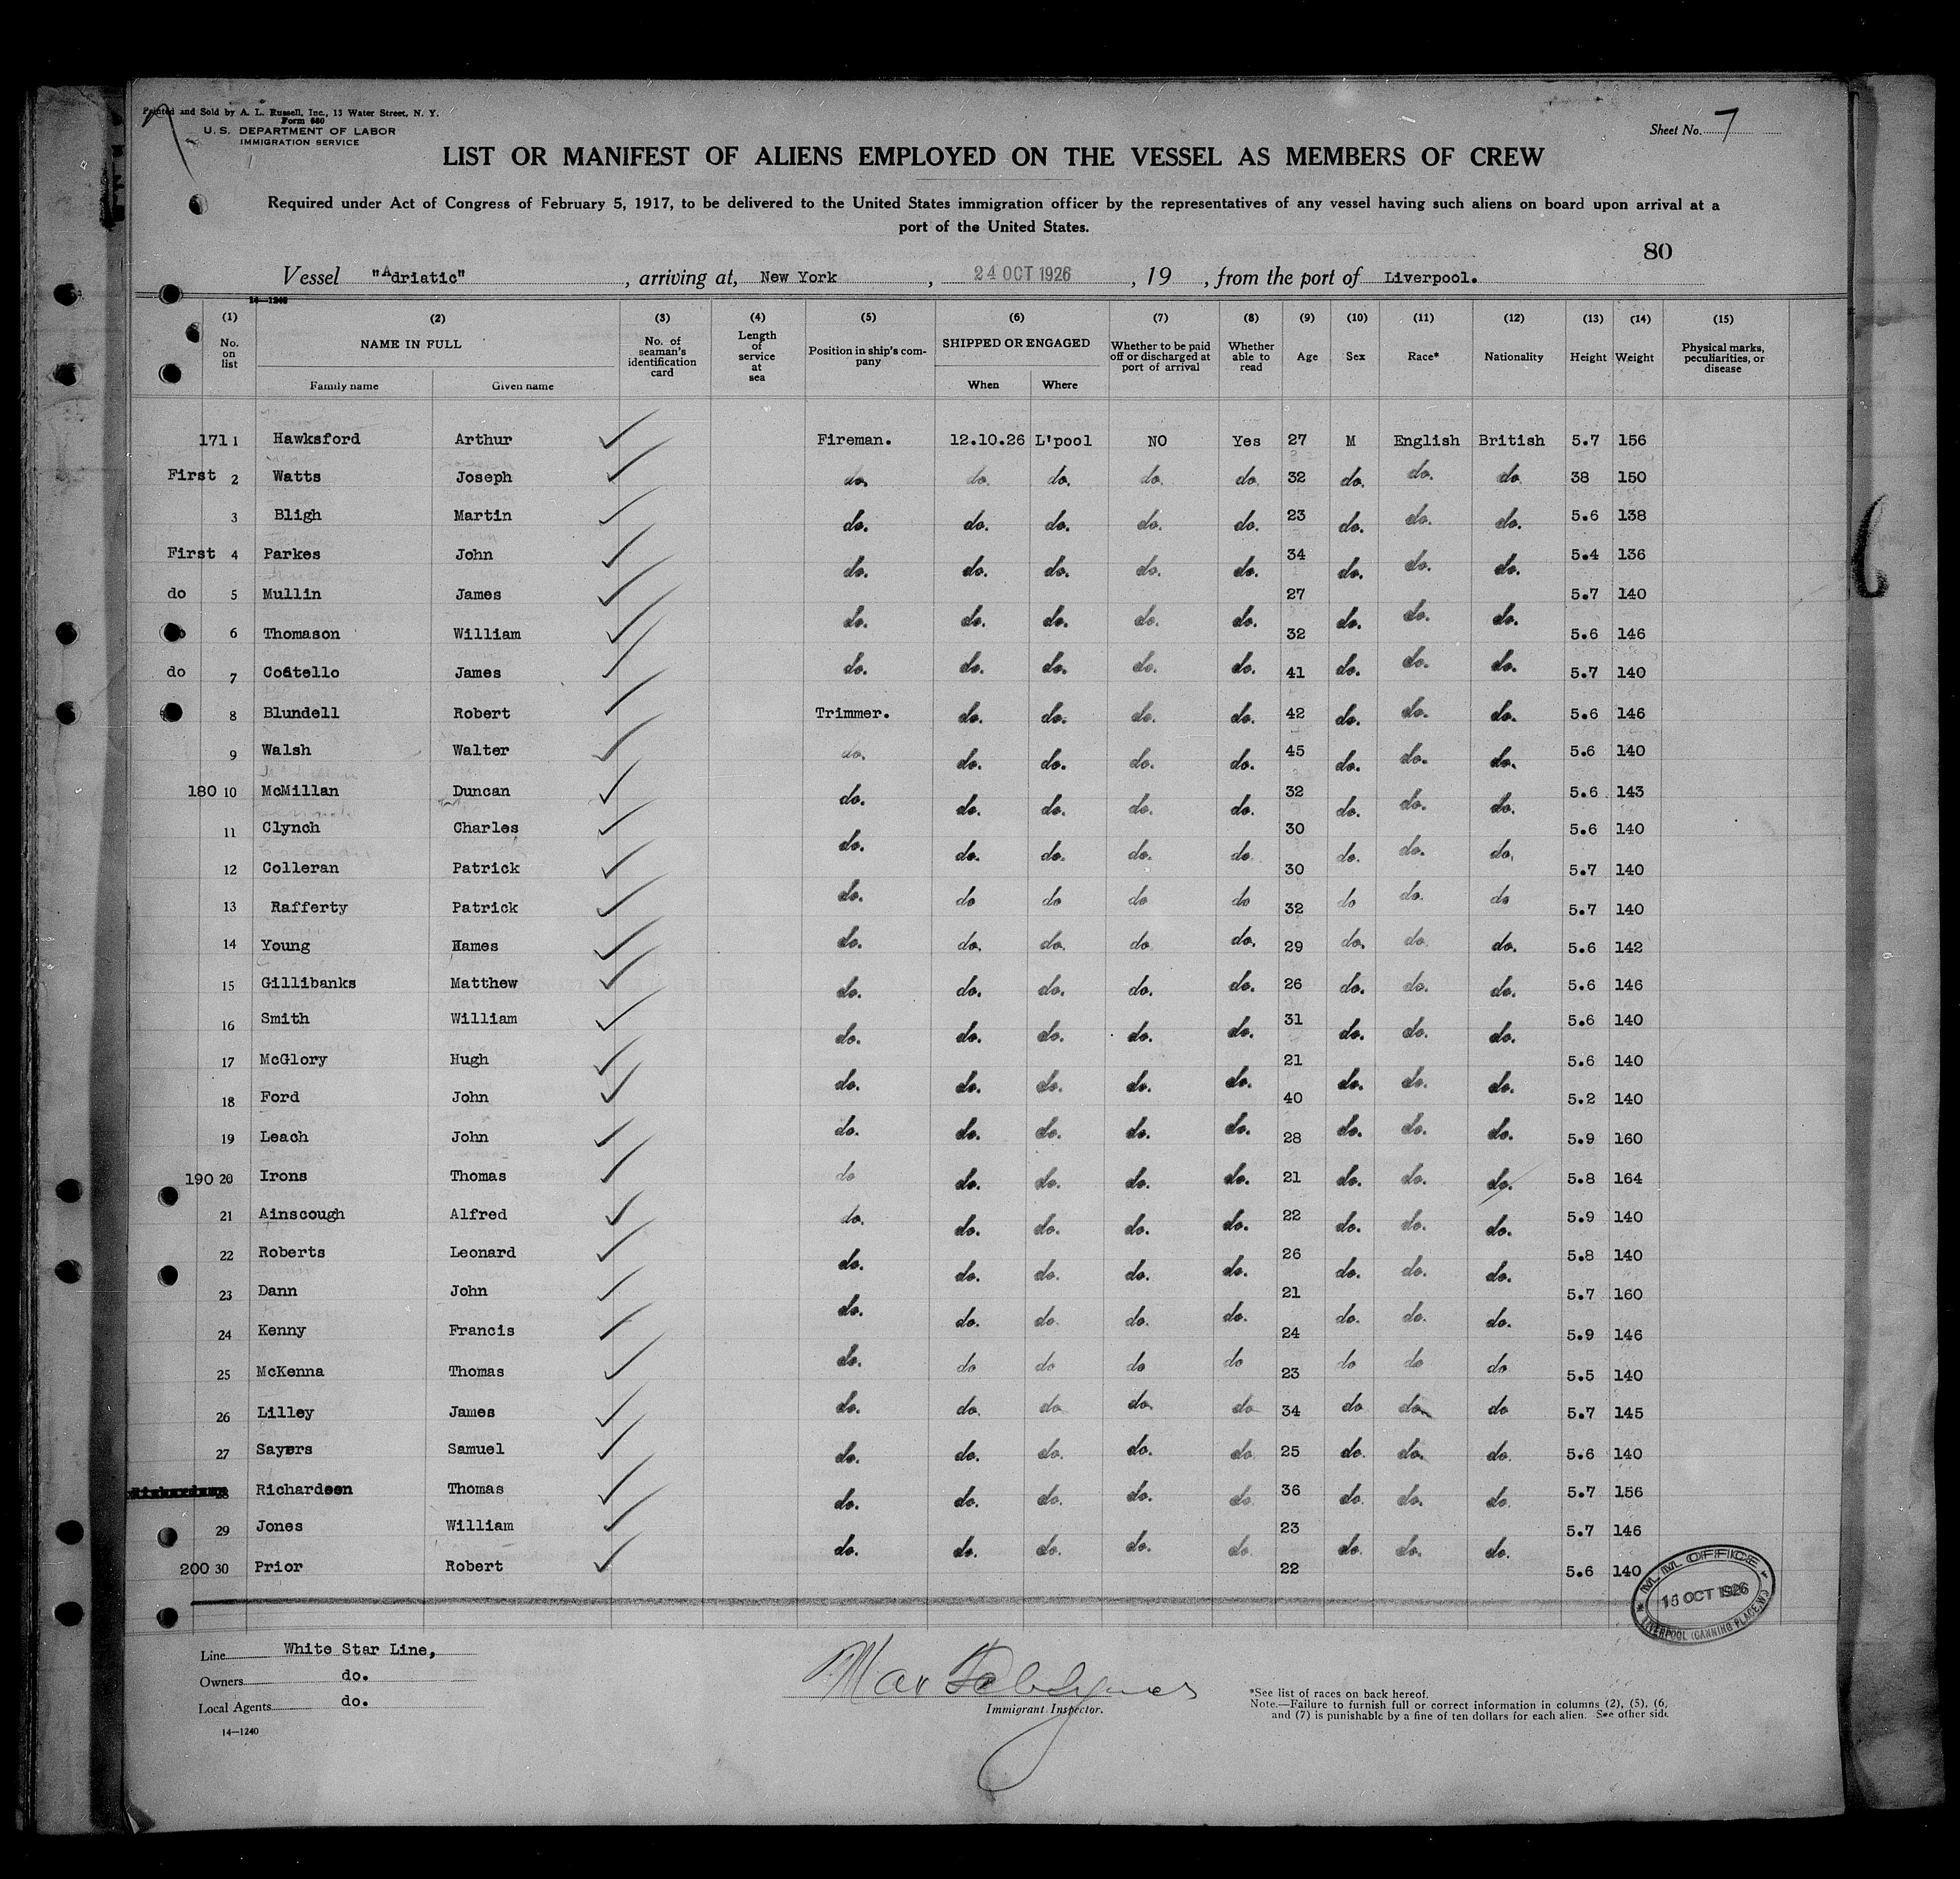 Printed and Sold by A. L. Russell, Inc., 13 Water Street, N. Y.
Form 680
U. S. DEPARTMENT OF LABOR
IMMIGRATION SERVICE
Sheet No. 7
LIST OR MANIFEST OF ALIENS EMPLOYED ON THE VESSEL AS MEMBERS OF CREW
Required under Act of Congress of February 5, 1917, to be delivered to the United States immigration officer by the representatives of any vessel having such aliens on board upon arrival at a
port of the United States.
80
Vessel "Adriatic", arriving at, New York, 24 OCT 1926, 19 , from the port of Liverpool.
14—1240
(1) (2) (3) (4) (5) (6) (7) (8) (9) (10) (11) (12) (13) (14) (15)
No. on list NAME IN FULL Family name Given name No. of seaman's identification card Length of service at sea Position in ship's company SHIPPED OR ENGAGED When Where Whether to be paid off or discharged at port of arrival Whether able to read Age Sex Race* Nationality Height Weight Physical marks, peculiarities, or disease
171 1 Hawksford Arthur Fireman. 12.10.26 L'pool NO Yes 27 M English British 5.7 156
First 2 Watts Joseph do. do. do. do. do. 32 do. do. do. 38 150
3 Bligh Martin do. do. do. do. do. 23 do. do. do. 5.6 138
First 4 Parkes John do. do. do. do. do. 34 do. do. do. 5.4 136
do 5 Mullin James do. do. do. do. do. 27 do. do. do. 5.7 140
6 Thomason William do. do. do. do. do. 32 do. do. do. 5.6 146
do 7 Costello James 41 5.7 140
8 Blundell Robert Trimmer. do. do. do. do. 42 do. do. do. 5.6 146
9 Walsh Walter do. do. do. do. do. 45 do. do. do. 5.6 140
180 10 McMillan Duncan do. do. do. do. do. 32 do. do. do. 5.6 143
11 Clynch Charles do. do. do. do. do. 30 do. do. do. 5.6 140
12 Colleran Patrick do. do do do do 30 do do. do 5.7 140
13 Rafferty Patrick do. do. do. do do. 32 do. do. do. 5.7 140
14 Young Hames do. do. do. do. do. 29 do. do. do. 5.6 142
15 Gillibanks Matthew do. do. do. do. do. 26 do. do. do. 5.6 146
16 Smith William do. do. do. do. do. 31 do. do. do. 5.6 140
17 McGlory Hugh do. do. do. do. do. 21 do. do. do. 5.6 140
18 Ford John do. do. do. do. do. 40 do. do. do. 5.2 140
19 Leach John do do. do. do. do. 28 do. do. do. 5.9 160
190 20 Irons Thomas do. do. do. do. do. 21 do. do. do. 5.8 164
21 Ainscough Alfred do. do. do. do. do. 22 do. do. do. 5.9 140
22 Roberts Leonard do. do. do. do. do. 26 do. do. do. 5.8 140
23 Dann John do. do do do do 21 do do do 5.7 160
24 Kenny Francis do. do. do do. do 24 do do. do 5.9 146
25 McKenna Thomas do. do. do. do. do 23 do. do. do. 5.5 140
26 Lilley James do. do. do. do. do. 34 do. do. do. 5.7 145
27 Sayers Samuel do. do. do. do. do. 25 do. do. do. 5.6 140
28 Richardson Thomas 36 5.7 156
29 Jones William 23 5.7 146
200 30 Prior Robert 22 5.6 140
M. M. OFFICE
15 OCT 1926
LIVERPOOL (CANNING PLACE, W)
Line White Star Line,
Owners do.
Local Agents do.
14—1240
Max
Immigrant Inspector.
*See list of races on back hereof.
Note.—Failure to furnish full or correct information in columns (2), (5), (6,
and (7) is punishable by a fine of ten dollars for each alien. See other side